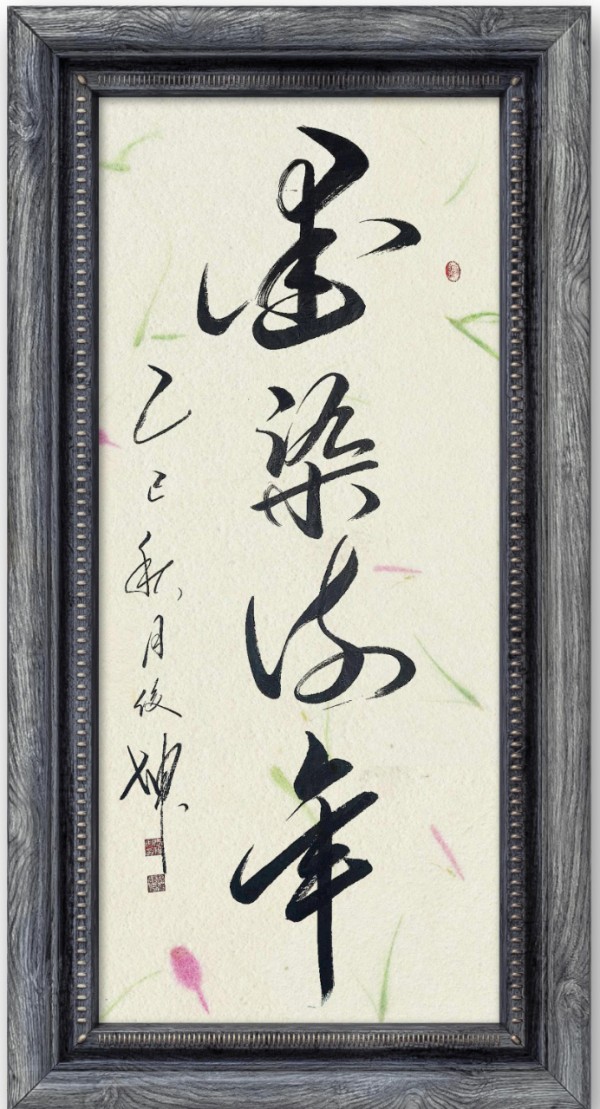 墨染流年
乙巳秋月俊坤